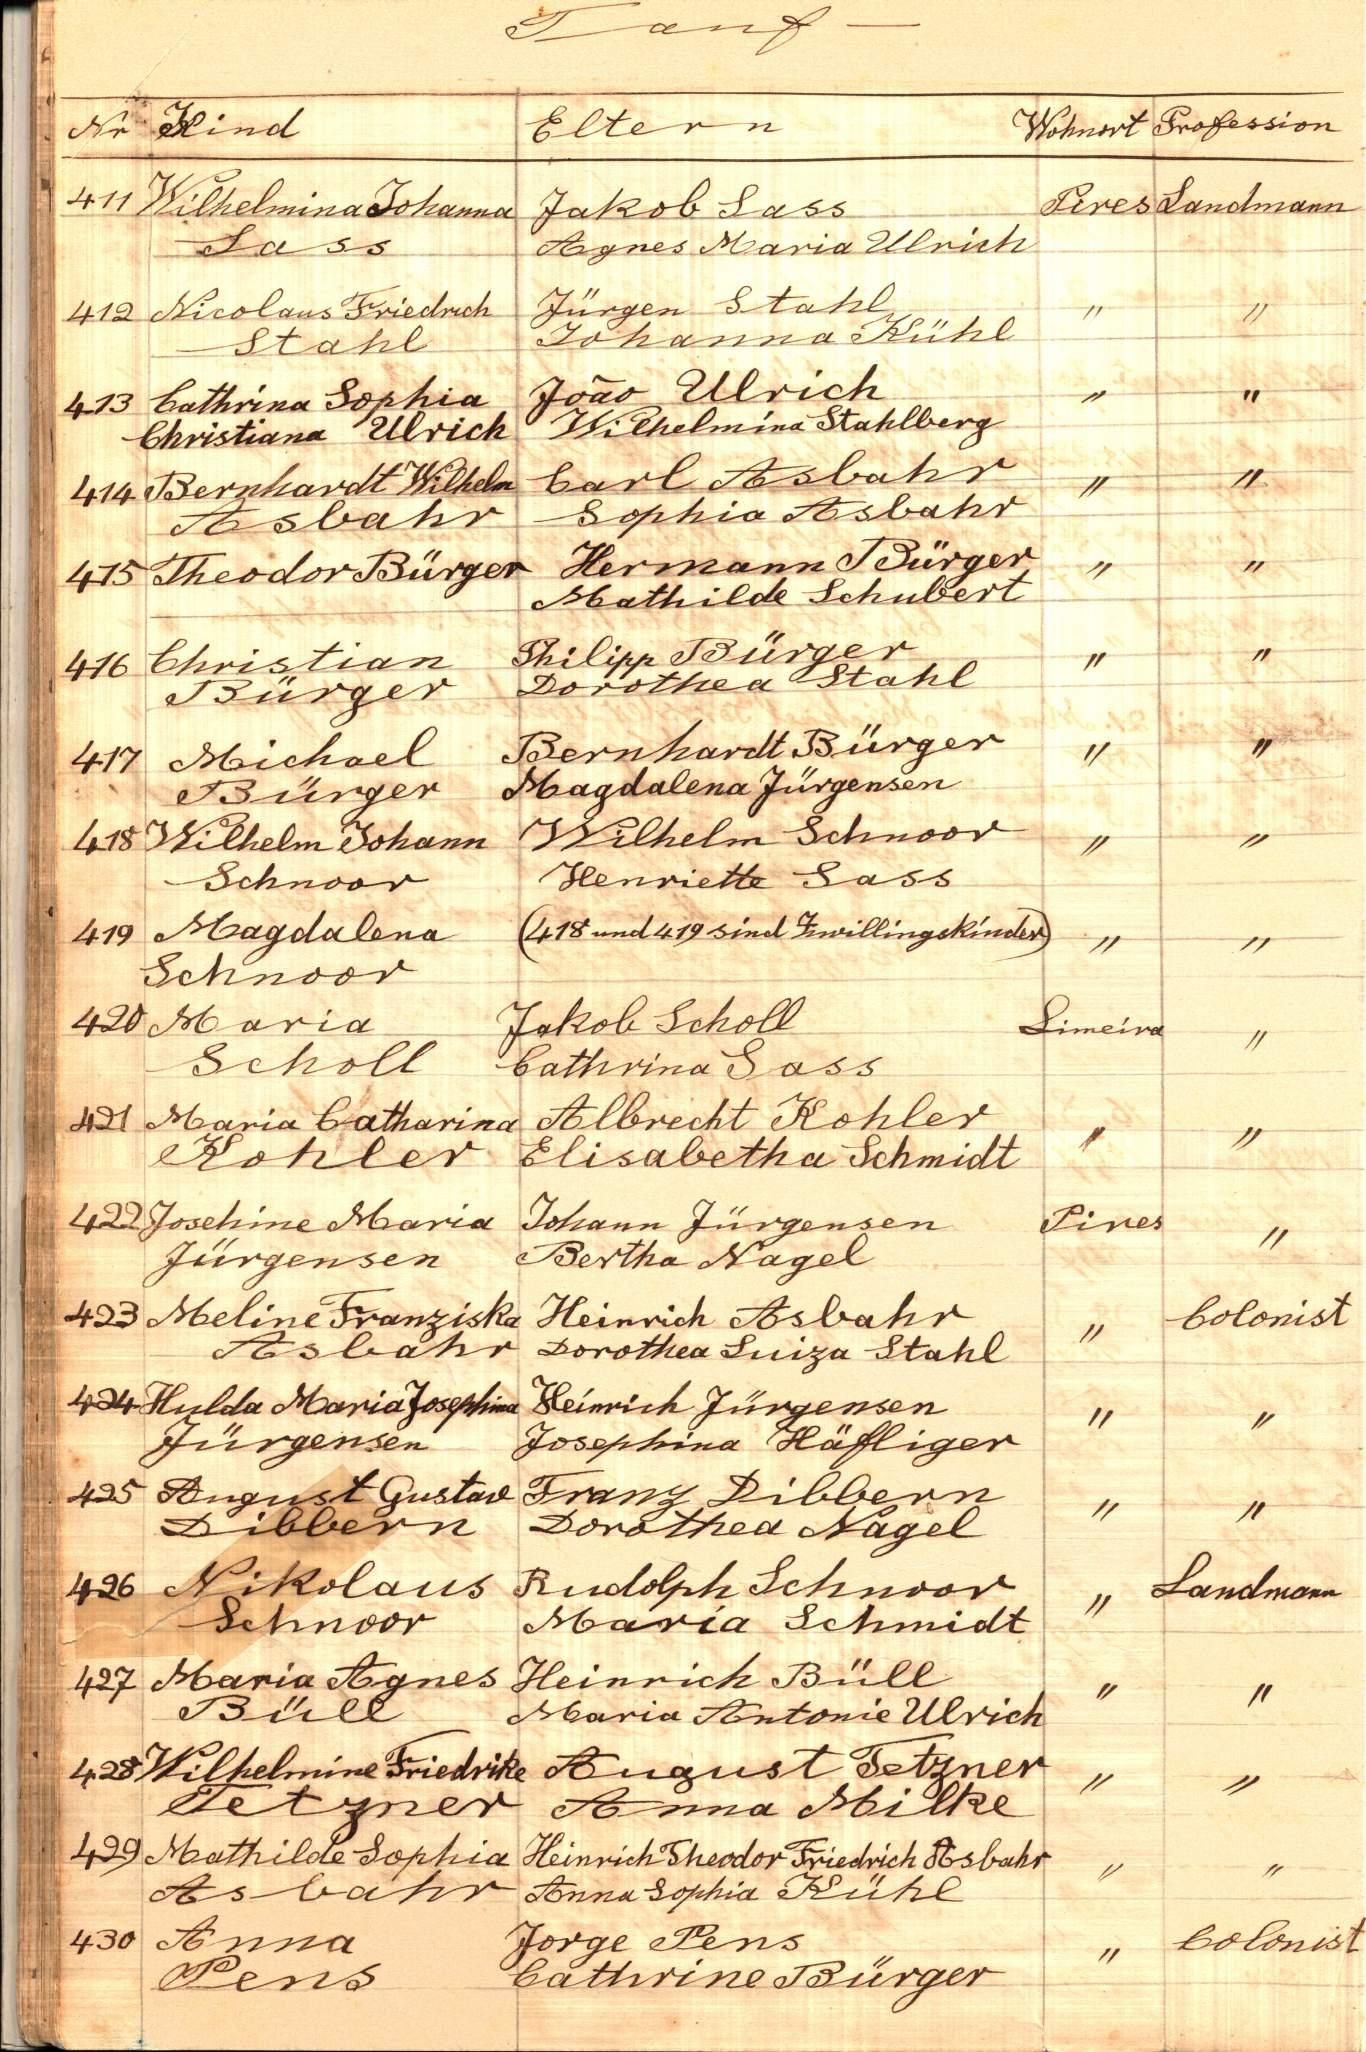 Tauf —
Nr Kind Eltern Wohnort Profession
411 Wilhelmina Johanna Jakob Sass Pires Landmann
Sass Agnes Maria Ulrich
412 Nicolaus Friedrich Jürgen Stahl " "
Stahl Johanna Kühl
413 Cathrina Sophia João Ulrich " "
Christiana Ulrich Wilhelmina Stahlberg
414 Bernhardt Wilhelm Carl Asbahr " "
Asbahr Sophia Asbahr
415 Theodor Bürger Hermann Bürger " "
Mathilde Schubert
416 Christian Philipp Bürger " "
Bürger Dorothea Stahl
417 Michael Bernhardt Bürger " "
Bürger Magdalena Jürgensen
418 Wilhelm Johann Wilhelm Schnoor " "
Schnoor Henriette Sass
419 Magdalena (418 und 419 sind Zwillingskinder) " "
Schnoor
420 Maria Jakob Scholl Limeira "
Scholl Cathrina Sass
421 Maria Catharina Albrecht Kohler " "
Kohler Elisabetha Schmidt
422 Josehine Maria Johann Jürgensen Pires "
Jürgensen Bertha Nagel
423 Meline Franziska Heinrich Asbahr " Colonist
Asbahr Dorothea Luiza Stahl
424 Hulda Maria Josephina Heinrich Jürgensen " "
Jürgensen Josephina Häfliger
425 August Gustav Franz Dibbern " "
Dibbern Dorothea Nagel
426 Nikolaus Rudolph Schnoor " Landmann
Schnoor Maria Schmidt
427 Maria Agnes Heinrich Büll " "
Büll Maria Antonie Ulrich
428 Wilhelmine Friedrike August Tetzner " "
Tetzner Anna Milke
429 Mathilde Sophia Heinrich Theodor Friedrich Asbahr " "
Asbahr Anna Sophia Kühl
430 Anna Jorge Pens " Colonist
Pens Cathrine Bürger